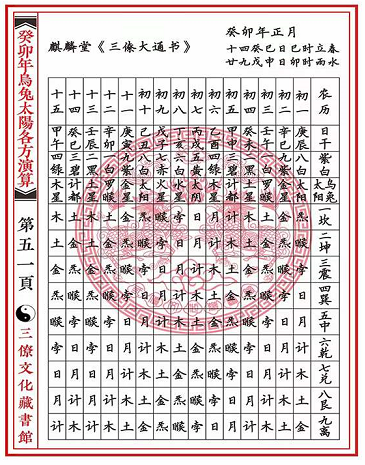 癸卯年烏兔太陽各方演算
第五一頁
三僚文化藏書館
麒麟堂《三僚大通书》
癸卯年正月
十四癸巳日巳时立春
廿九戊申日卯时雨水
农历 日干 紫白 乌兔太阳 一坎 二坤 三震 四巽 五中 六乾 七兑 八艮 九离
初一 庚辰 八白 太阳 孛 日 月 计 木 土 金 炁 睺
初二 辛巳 九紫 金星 睺 孛 日 月 计 木 土 金 炁
初三 壬午 一白 罗睺 炁 睺 孛 日 月 计 木 土 金
初四 癸未 二黑 土星 金 炁 睺 孛 日 月 计 木 土
初五 甲申 三碧 计都 土 金 炁 睺 孛 日 月 计 木
初六 乙酉 四绿 木星 木 土 金 炁 睺 孛 日 月 计
初七 丙戌 五黄 太阴 计 木 土 金 炁 睺 孛 日 月
初八 丁亥 六白 水星 月 计 木 土 金 炁 睺 孛 日
初九 戊子 七赤 火星 日 月 计 木 土 金 炁 睺 孛
初十 己丑 八白 太阳 孛 日 月 计 木 土 金 炁 睺
十一 庚寅 九紫 金星 睺 孛 日 月 计 木 土 金 炁
十二 辛卯 一白 罗睺 炁 睺 孛 日 月 计 木 土 金
十三 壬辰 二黑 土星 金 炁 睺 孛 日 月 计 木 土
十四 癸巳 三碧 计都 土 金 炁 睺 孛 日 月 计 木
十五 甲午 四绿 木星 木 土 金 炁 睺 孛 日 月 计